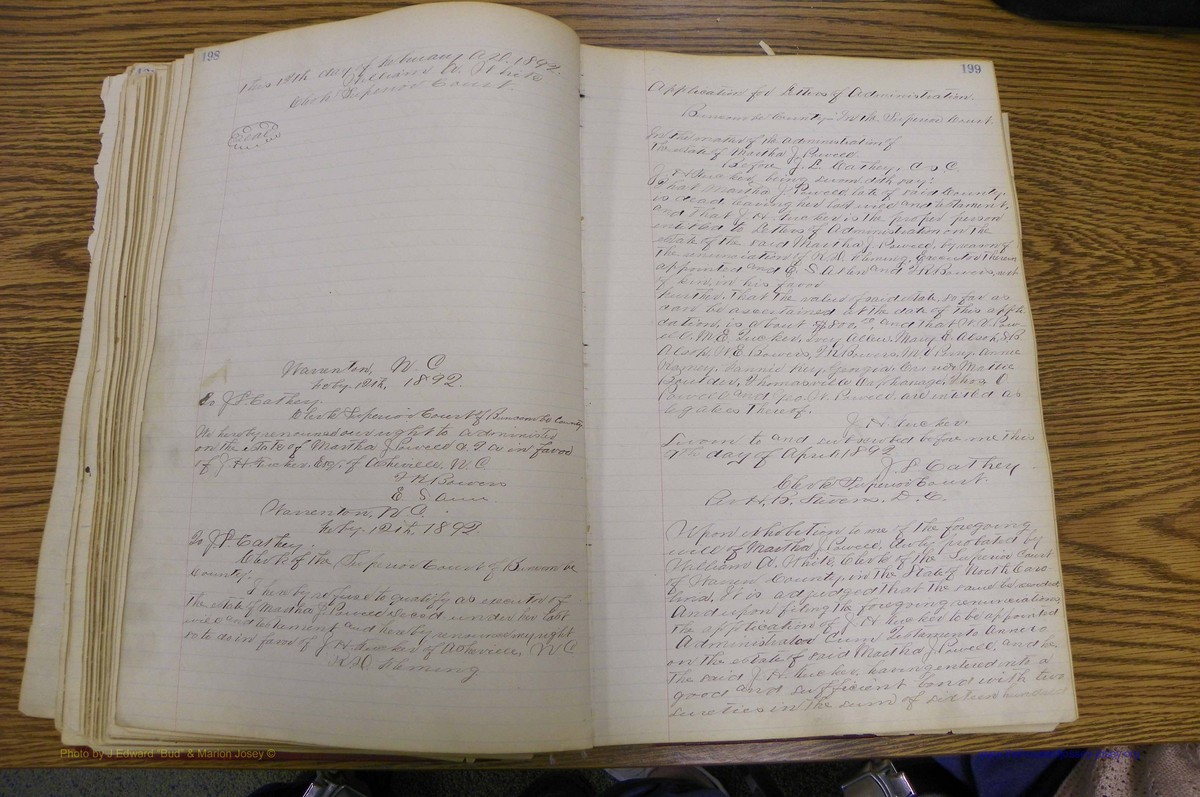 198
this 12th day of February A.D. 1892.
William A. White
Clerk Superior Court
Seal
Warrenton, N.C
Feby. 12th, 1892.
To J L Cathey
Clerk Superior Court of Buncombe County
We hereby renounce our right to administer
on the estate of Martha J Powell in favor
of J H Tucker, Esq. of Asheville, N.C
F R Bowers
E S
Warrenton, N.C.
Feby. 12th, 1892.
To J L Cathey.
Clerk of the Superior Court of Buncombe
County.
I hereby refuse to qualify as executor of
the estate of Martha J Powell decd under her last
will and testament and hereby renounce my right
so to do in favor of J H Tucker of Asheville, N C
Fleming
199
Application for Letters of Administration.
Buncombe County - In the Superior Court
In the matter of the administration of
the estate of Martha J Powell
Before J. L Cathey, C S C.
J H Tucker, being sworn doth say:
That Martha J Powell, late of said County,
is dead, leaving her last will and testament,
and that J. H. Tucker is the proper person
entitled to Letters of Administration on the
estate of the said Martha J. Powell, by reason of
the renunciation of Fleming, Executor therein
appointed and E. S and F R Bowers, next
of kin, in his favor
Further, That the value of said estate, so far as
can be ascertained at the date of this appli-
cation, is about $800, and that Pow-
ell, M. E. Tucker, Lucy Allen, Mary E. Alsok, S B
Alsok, W E. Bowers, F R Bowers, M C Perry, Annie
Fannie Key, Georgia Mattie
Thomasville Orphanage, Thos. C
Powell and Geo. W. Powell are entitled as
legatees thereof.
J. H. Tucker
Sworn to and subscribed before me this
9th day of April 1892
J. L Cathey
Clerk Superior Court.
Per H. B. Stevens, D. C.
Upon exhibition to me of the foregoing
will of Martha J. Powell, duly probated by
William A. White, Clerk of the Superior Court
of Warren County in the State of North Caro-
lina, It is adjudged that the same be recorded
And upon filing the foregoing renunciations
the application of J. H Tucker to be appointed
Administrator Cum Testamento Annexo
on the estate of said Martha J. Powell, and he
the said J. H Tucker, having entered into a
good and sufficient bond with two
sureties in the sum of sixteen hundred
Photo by J Edward "Bud" & Marion Josey ©